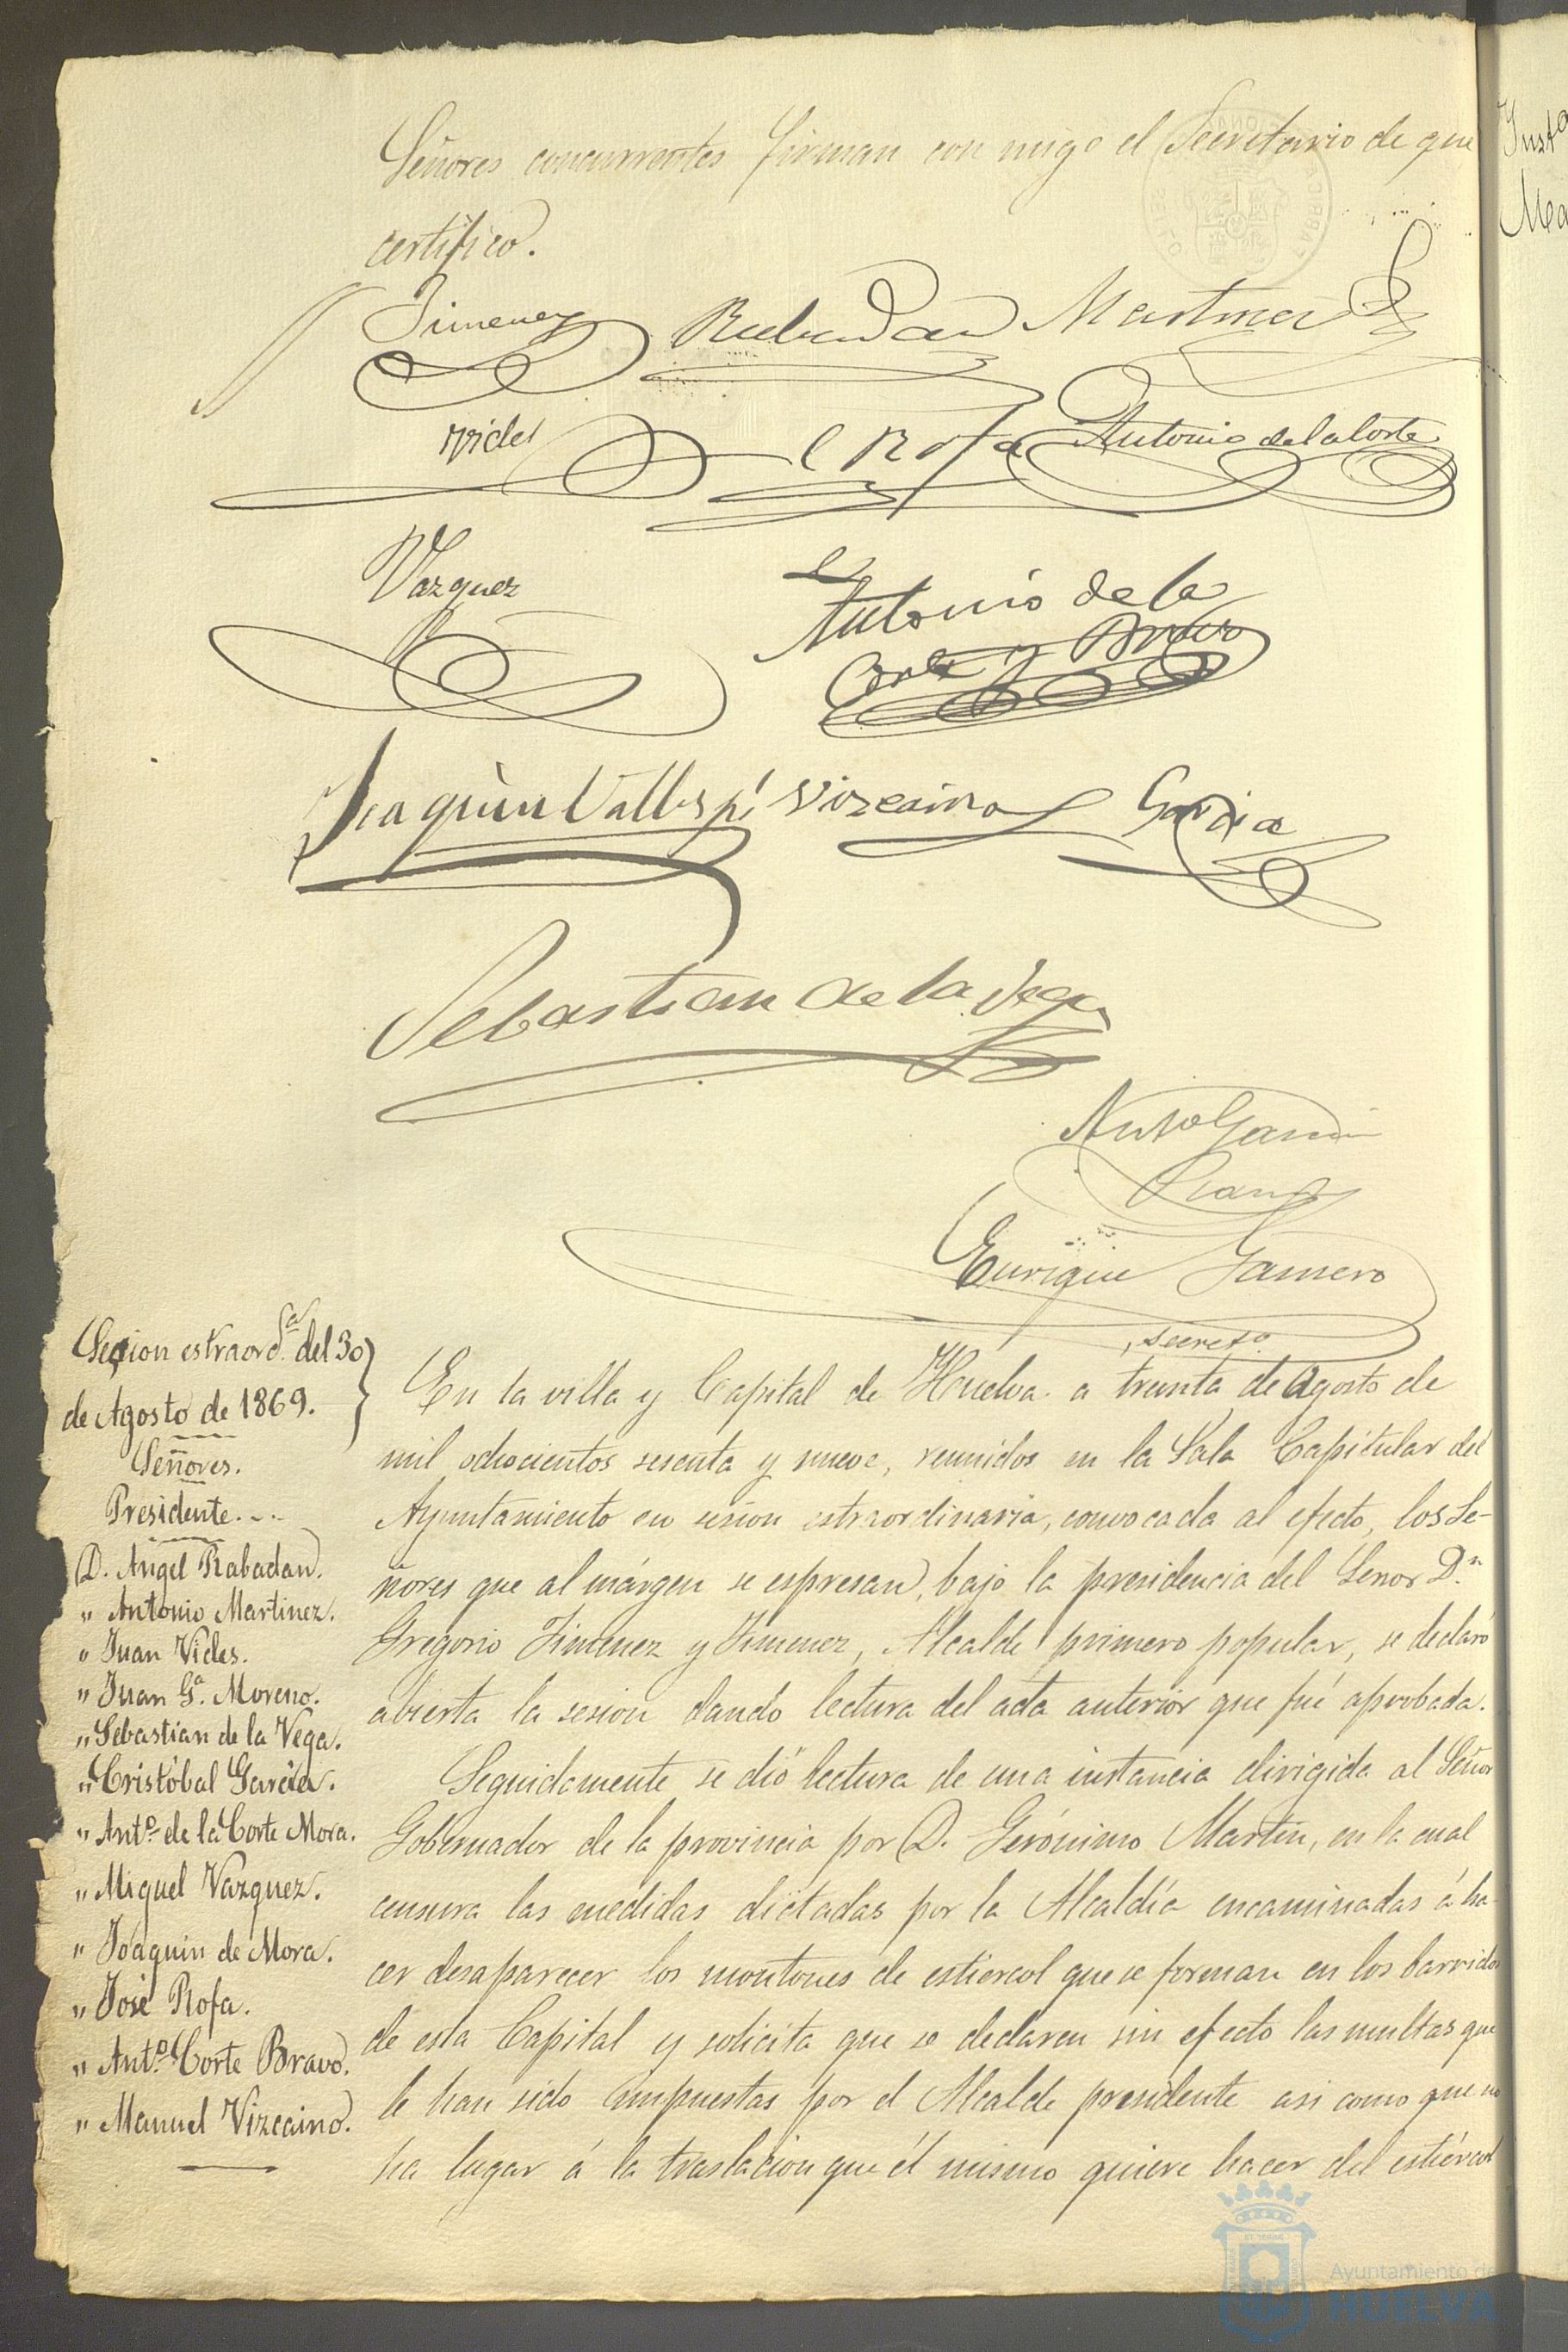 Señores concurrentes firman con migo el Secretario de que
certifico.
Jimenez Rabadan Martinez
Vides J Rofa Antonio de la Corte
Vazquez
Antonio de la
Corte y Bravo
Joaquin Vallespí Vizcaino Garcia
Sebastian de la Vega
Antº Garcia
Enrique Gamero
secretº
Sesion estraordª del 30
de Agosto de 1869.
Señores.
Presidente...
D. Angel Rabadan.
" Antonio Martinez.
" Juan Vides.
" Juan Gª. Moreno.
" Sebastian de la Vega.
" Cristóbal Garcia.
" Antº de la Corte Mora.
" Miguel Vazquez.
" Joaquin de Mora.
" José Rofa.
" Antº Corte Bravo.
" Manuel Vizcaino.
En la villa y Capital de Huelva a treinta de Agosto de
mil ochocientos sesenta y nueve, reunidos en la Sala Capitular del
Ayuntamiento en sesion estraordinaria, convocada al efecto, los Se-
ñores que al márgen se espresan, bajo la presidencia del Señor Dn
Gregorio Jimenez y Jimenez, Alcalde primero popular, se declaró
abierta la sesion dando lectura del acta anterior que fué aprobada.
Seguidamente se dió lectura de una instancia dirigida al Señor
Gobernador de la provincia por D. Gerónimo Martin, en la cual
censura las medidas dictadas por la Alcaldía encaminadas á ha-
cer desaparecer los montones de estiercol que se forman en los barridos
de esta Capital y solicita que se declaren sin efecto las multas que
le han sido impuestas por el Alcalde presidente asi como que no
ha lugar á la traslacion que él mismo quiere hacer del estiércol
Ayuntamiento de
HUELVA